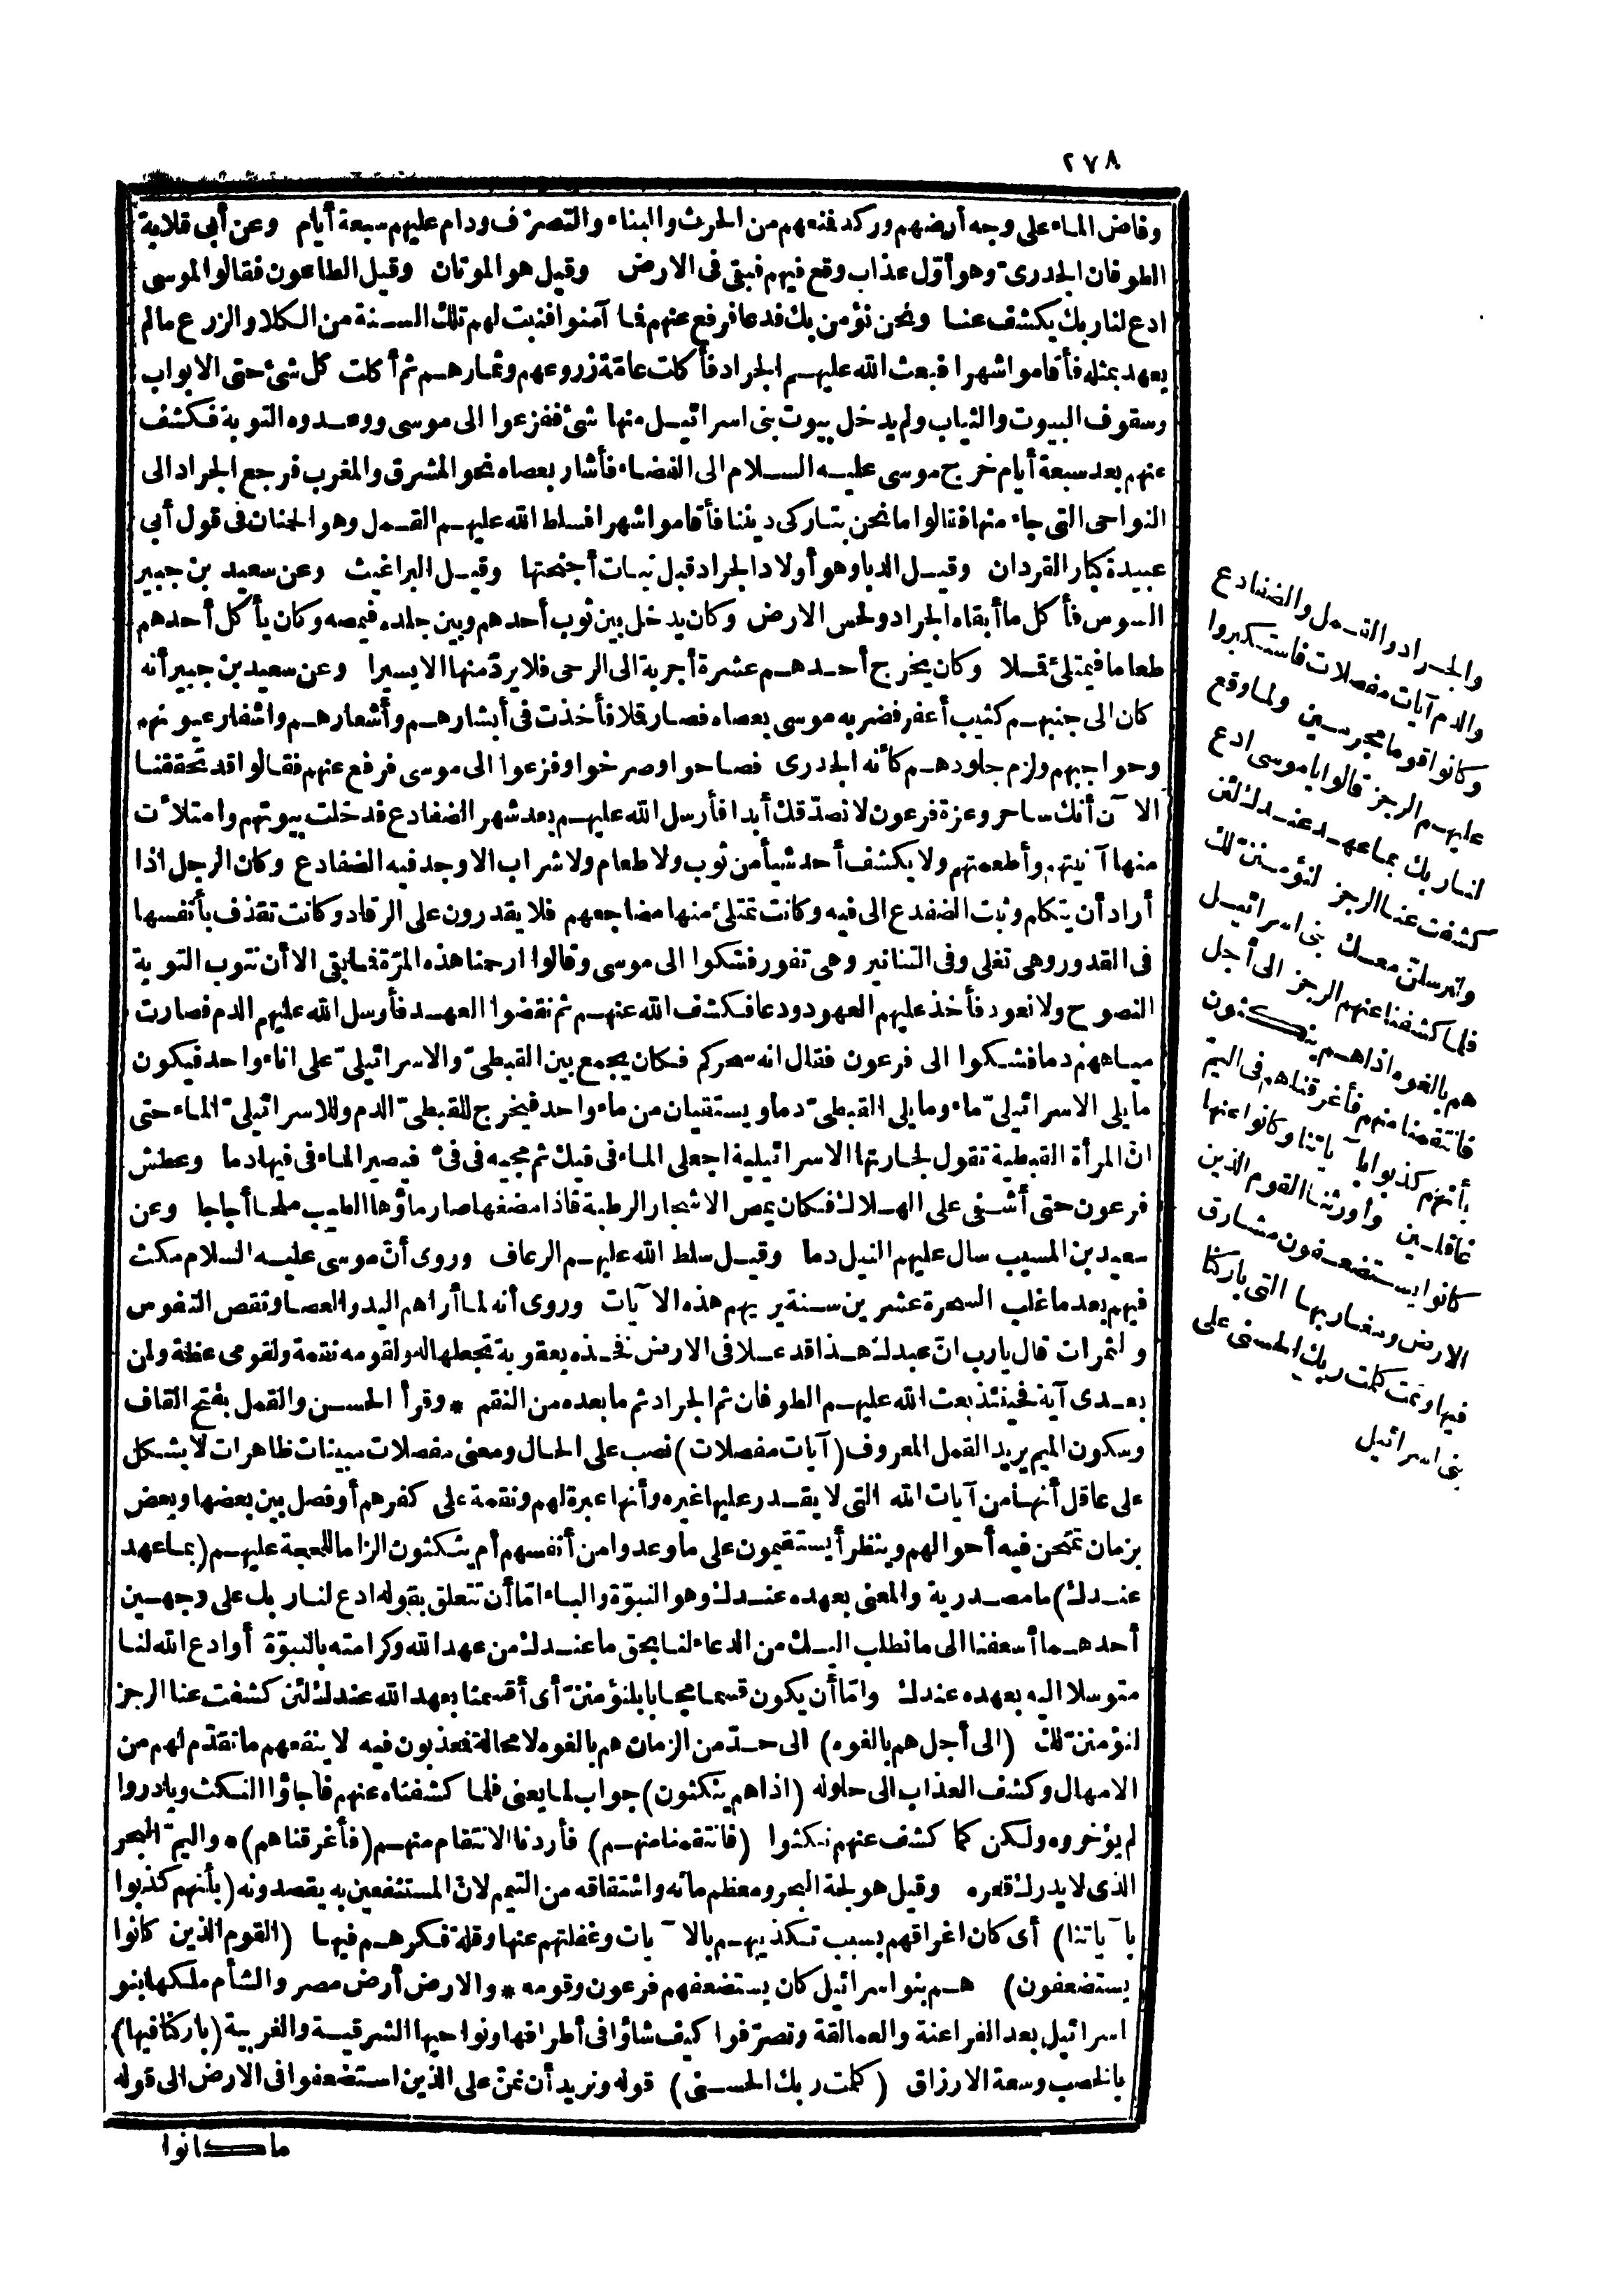 ٢٧٨
وفاض الماء على وجه أرضهم وركد فمنعهم من الحرث والبناء والتصرّف ودام عليهم سبعة أيام وعن أبى قلابة
الطوفان الجدرىّ وهو أوّل عذاب وقع فيهم فبقى فى الارض وقيل هو الموتان وقيل الطاعون فقالوا لموسى
ادع لنا ربك يكشف عنا ونحن نؤمن بك فدعا فرفع عنهم فما آمنوا فنبت لهم تلك السنة من الكلا والزرع مالم
يعهد بمثله فأقاموا شهرا فبعث الله عليهم الجراد فأكلت عامّة زروعهم وثمارهم ثم أكلت كل شئ حتى الابواب
وسقوف البيوت والثياب ولم يدخل بيوت بنى اسرائيل منها شئ ففزعوا الى موسى ووعدوه التوبة فكشف
عنهم بعد سبعة أيام خرج موسى عليه السلام الى الفضاء فأشار بعصاه نحو المشرق والمغرب فرجع الجراد الى
النواحى التى جاء منها فقالوا ما نحن بتاركى ديننا فأقاموا شهرا فسلط الله عليهم القمل وهو الحنان فى قول أبى
عبيدة كبار القردان وقيل الدبا وهو أولاد الجراد قبل نبات أجنحتها وقيل البراغيث وعن سعيد بن جبير
السوس فأكل ما أبقاه الجراد ولحس الارض وكان يدخل بين ثوب أحدهم وبين جلده فيمصه وكان يأكل أحدهم
طعاما فيمتلئ قملا وكان يخرج أحدهم عشرة أجربة الى الرحى فلا يردّ منها الا يسيرا وعن سعيد بن جبير أنه
كان الى جنبهم كثيب أعفر فضربه موسى بعصاه فصار قملا فأخذت فى أبشارهم وأشعارهم واشفار عيونهم
وحواجبهم ولزم جلودهم كأنه الجدرى فصاحوا وصرخوا وفزعوا الى موسى فرفع عنهم فقالوا قد تحققنا
الآن أنك ساحر وعزة فرعون لا نصدّقك أبدا فأرسل الله عليهم بعد شهر الضفادع فدخلت بيوتهم وامتلأت
منها آنيتهم وأطعمتهم ولا يكشف أحد شيأ من ثوب ولا طعام ولا شراب الا وجد فيه الضفادع وكان الرجل اذا
أراد أن يتكلم وثبت الضفدع الى فيه وكانت تمتلئ منها مضاجعهم فلا يقدرون على الرقاد وكانت تقذف بأنفسها
فى القدور وهى تغلى وفى التنانير وهى تفور فشكوا الى موسى وقالوا ارحمنا هذه المرّة فما بقى الا أن نتوب التوبة
النصوح ولا نعود فأخذ عليهم العهود ودعا فكشف الله عنهم ثم نقضوا العهد فأرسل الله عليهم الدم فصارت
مياههم دما فشكوا الى فرعون فقال انه سحركم فكان يجمع بين القبطىّ والاسرائيلىّ على اناء واحد فيكون
ما يلى الاسرائيلىّ ماء وما يلى القبطىّ دما ويستقيان من ماء واحد فيخرج للقبطىّ الدم وللاسرائيلىّ الماء حتى
انّ المرأة القبطية تقول لجارتها الاسرائيلية اجعلى الماء فى فيك ثم مجيه فى فىّ فيصير الماء فى فيها دما وعطش
فرعون حتى أشفى على الهلاك فكان يمص الاشجار الرطبة فاذا مضغها صار ماؤها الطيب ملحا أجاجا وعن
سعيد بن المسيب سال عليهم النيل دما وقيل سلط الله عليهم الرعاف وروى أنّ موسى عليه السلام مكث
فيهم بعد ما غلب السحرة عشرين سنة يريهم هذه الآيات وروى أنه لما أراهم اليد والعصا ونقص النفوس
والثمرات قال يارب انّ عبدك هذا قد علا فى الارض فخذه بعقوبة تجعلها له ولقومه نقمة ولقومى عظة ولمن
بعدى آية فحينئذ بعث الله عليهم الطوفان ثم الجراد ثم ما بعده من النقم * وقرأ الحسن والقمل بفتح القاف
وسكون الميم يريد القمل المعروف (آيات مفصلات) نصب على الحال ومعنى مفصلات مبينات ظاهرات لا يشكل
على عاقل أنها من آيات الله التى لا يقدر عليها غيره وأنها عبرة لهم ونقمة على كفرهم أو فصل بين بعضها وبعض
بزمان تمتحن فيه أحوالهم وينظر أيستقيمون على ما وعدوا من أنفسهم أم ينكثون الزاما للحجة عليهم (بما عهد
عندك) ما مصدرية والمعنى بعهده عندك وهو النبوّة والباء امّا أن تتعلق بقوله ادع لنا ربك على وجهين
أحدهما أسعفنا الى ما نطلب اليك من الدعاء لنا بحق ما عندك من عهد الله وكرامته بالنبوّة أو ادع الله لنا
متوسلا اليه بعهده عندك وامّا أن يكون قسما مجابا بلنؤمننّ أى أقسمنا بعهد الله عندك لئن كشفت عنا الرجز
لنؤمننّ لك (الى أجل هم بالغوه) الى حدّ من الزمان هم بالغوه لا محالة فمعذبون فيه لا ينفعهم ما تقدّم لهم من
الامهال وكشف العذاب الى حلوله (اذا هم ينكثون) جواب لما يعنى فلما كشفناه عنهم فاجاؤا النكث وبادروا
لم يؤخروه ولكن كما كشف عنهم نكثوا (فانتقمنا منهم) فأردنا الانتقام منهم (فأغرقناهم) * واليمّ البحر
الذى لا يدرك قعره وقيل هو لجة البحر ومعظم مائه واشتقاقه من التيمم لانّ المستنفعين به يقصدونه (بأنهم كذبوا
بآياتنا) أى كان اغراقهم بسبب تكذيبهم بالآيات وغفلتهم عنها وقلة فكرهم فيها (القوم الذين كانوا
يستضعفون) هم بنو اسرائيل كان يستضعفهم فرعون وقومه * والارض أرض مصر والشأم ملكها بنو
اسرائيل بعد الفراعنة والعمالقة وتصرّفوا كيف شاؤا فى أطرافها ونواحيها الشرقية والغربية (باركنا فيها)
بالخصب وسعة الارزاق (كلمت ربك الحسنى) قوله ونريد أن نمنّ على الذين استضعفوا فى الارض الى قوله
ما كانوا
والجراد والقمل والضفادع
والدم آيات مفصلات فاستكبروا
وكانوا قوما مجرمين ولما وقع
عليهم الرجز قالوا ياموسى ادع
لنا ربك بما عهد عندك لئن
كشفت عنا الرجز لنؤمننّ لك
ولنرسلنّ معك بنى اسرائيل
فلما كشفنا عنهم الرجز الى أجل
هم بالغوه اذا هم ينكثون
فانتقمنا منهم فأغرقناهم فى اليمّ
بأنهم كذبوا بآياتنا وكانوا عنها
غافلين وأورثنا القوم الذين
كانوا يستضعفون مشارق
الارض ومغاربها التى باركنا
فيها وتمت كلمت ربك الحسنى على
بنى اسرائيل